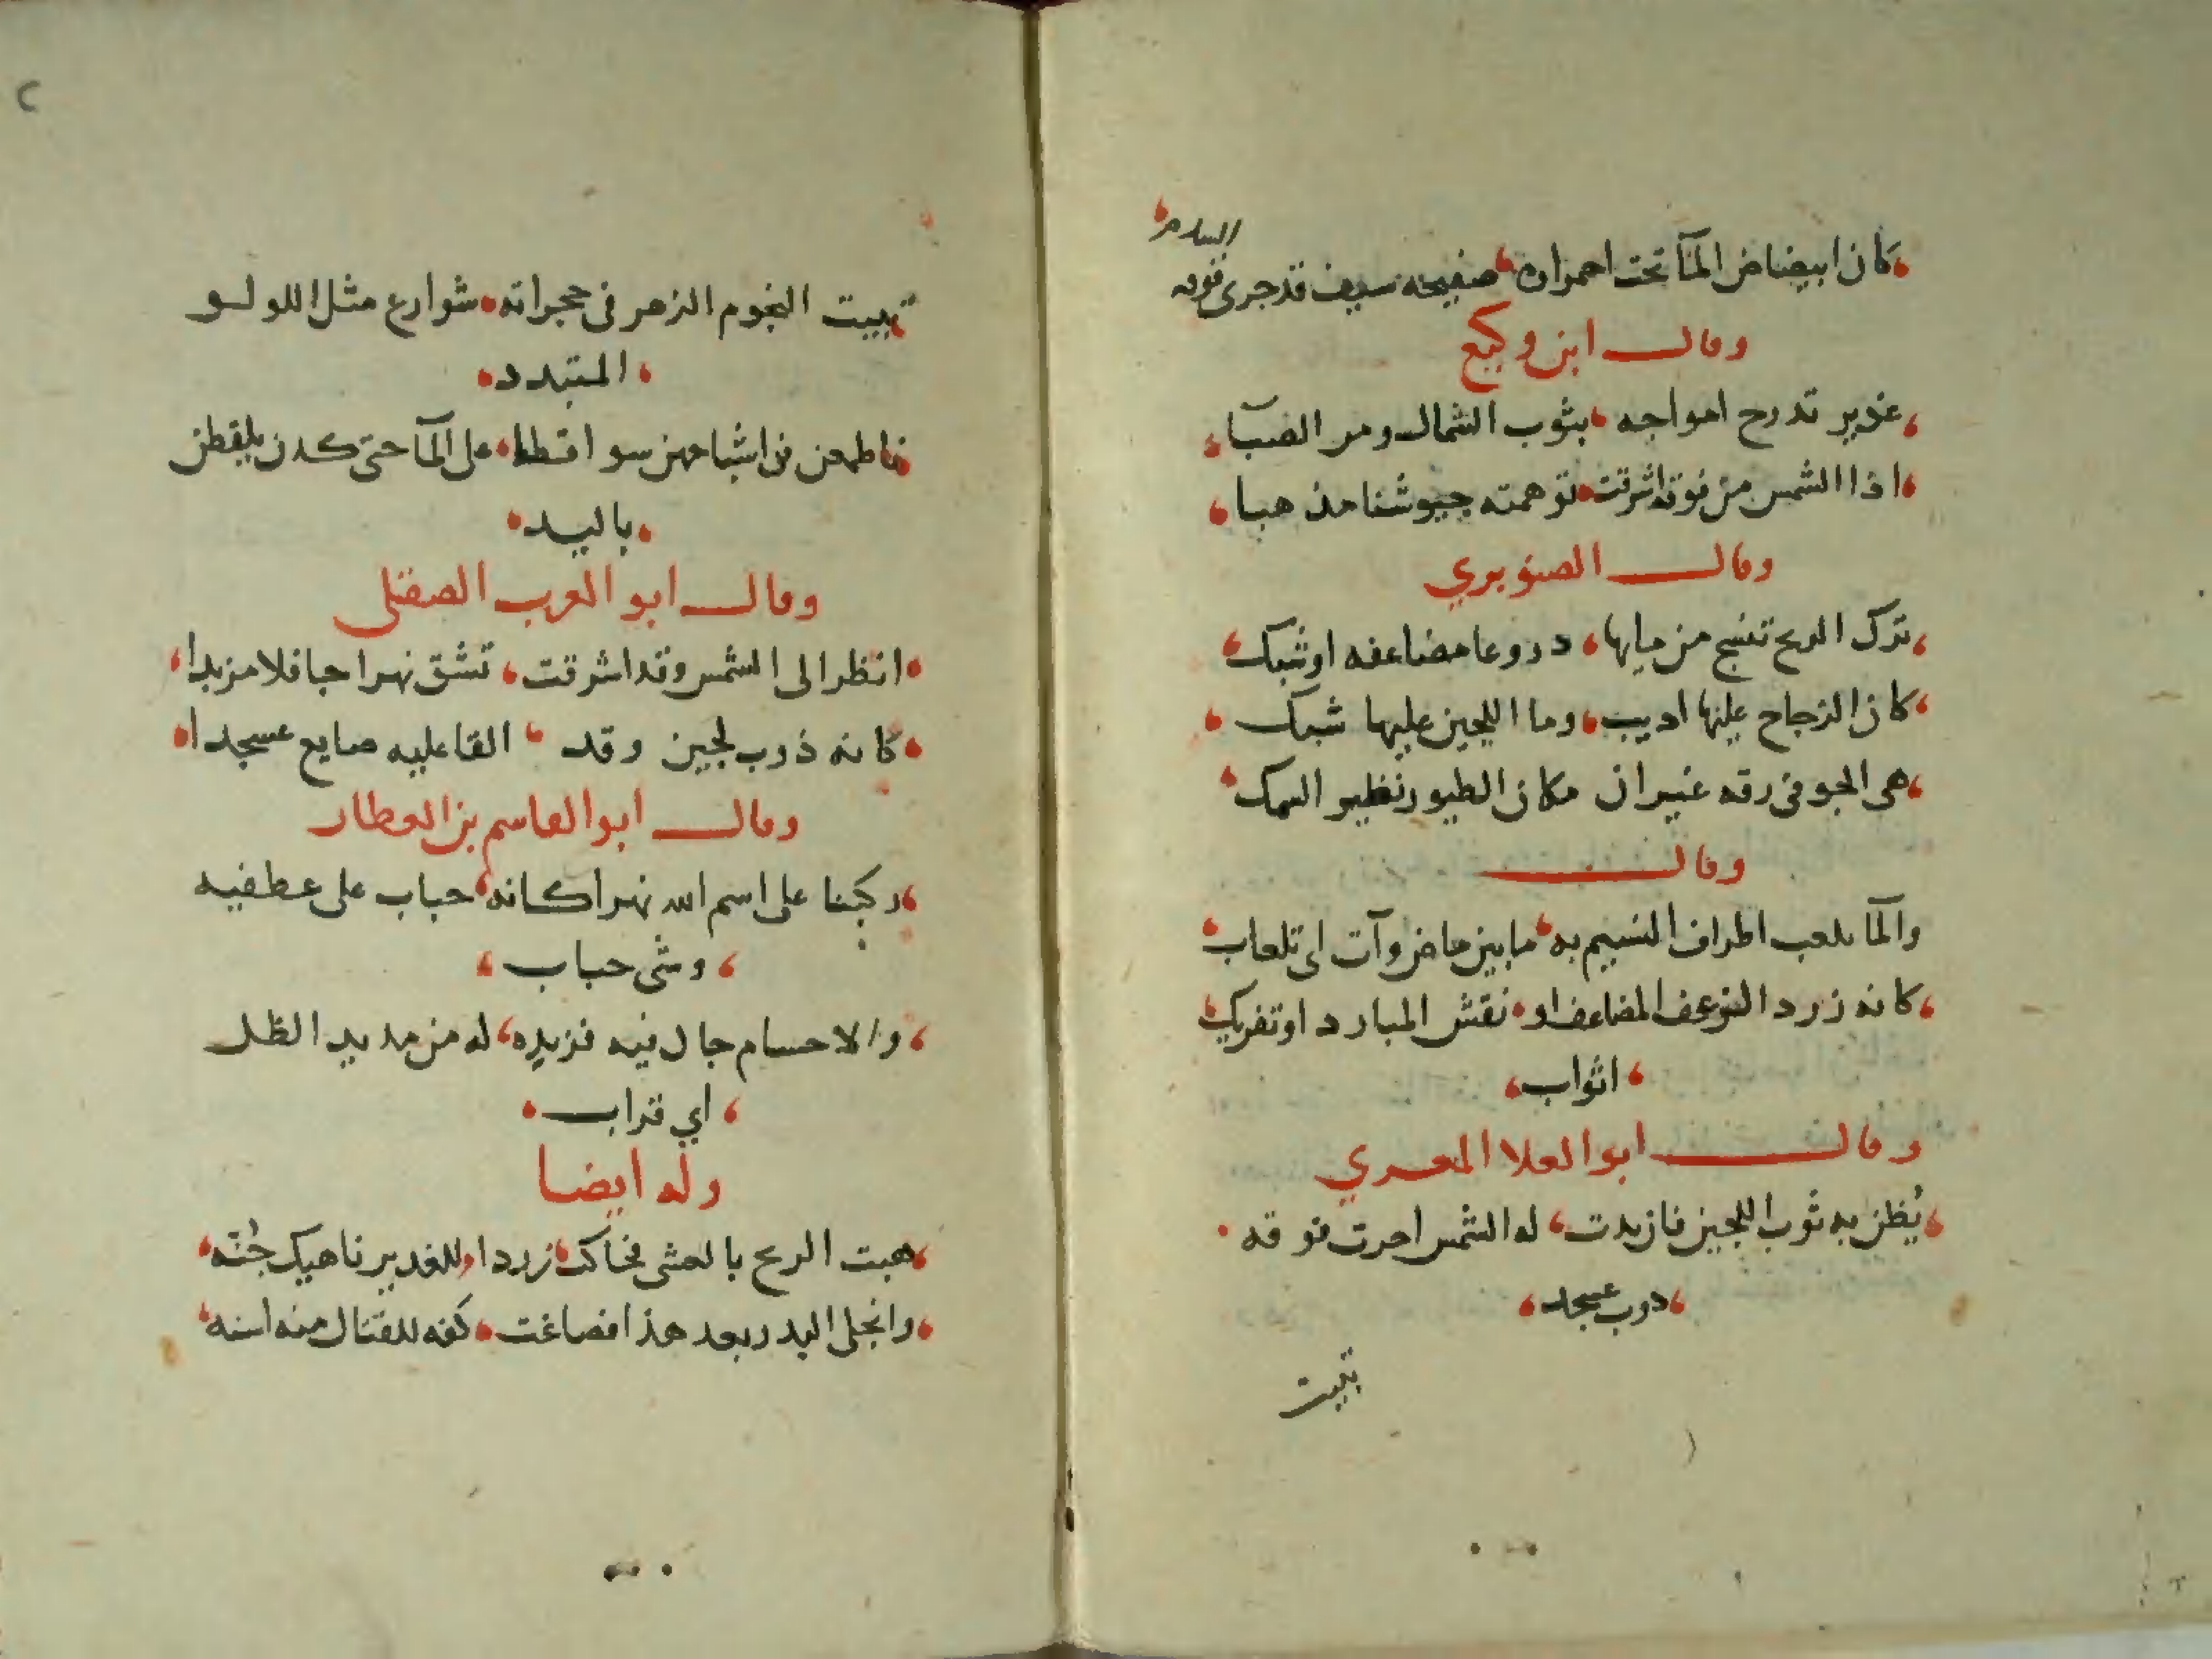 كان ابيضاض المآ تحت احمراره صفيحه سيف قد جرى فوقه
الدم
وقال ابن وكيع
غدير تدرج امواجه بثوب الشمال ومر الصبا
اذا الشمس من فوقه اشرقت توهمته جوشنا مذهبا
وقال الصنوبري
ترك الريح تنسج من مايها دروعا مضاعفه او شبك
كان الزجاج عليها اديب وما اللجين عليها شبك
هي الجو في رقه غير ان مكان الطيور نظير السمك
وقال
والمآ يلعب اطراف النسيم به ما بين ماض وآت اي تلعاب
كانه زرد الزعف المضاعف او نقش المبارد او تفريك
اثواب
وقال ابو العلا المعري
يُظن به ثوب اللجين فان بدت له الشمس اجرت فوقه
دوب عسجد
تبيت
تبيت النجوم الزهر في حجراته شوارع مثل اللولو
المتبدد
فاطمعن في اشباحهن سواقطا على المآ حتى كدن يلقطن
باليد
وقال ابو العرب الصقلى
انظر الى الشمس وقد اشرقت تشق نهرا جافلا مزبدا
كانه ذوب لجين وقد القا عليه صايع عسجدا
وقال ابو القاسم بن العطار
ركبنا على اسم الله نهرا كانه حباب على عطفيه
وشى حباب
والا حسام جال فيه فرنده له من مديد الظل
اي قراب
وله ايضا
هبت الريح بالعشى فحاكت زردا للغدير ناهيك جُنّه
وانجلى البدر بعد هذا فصاغت كفه للقتال منه اسنه